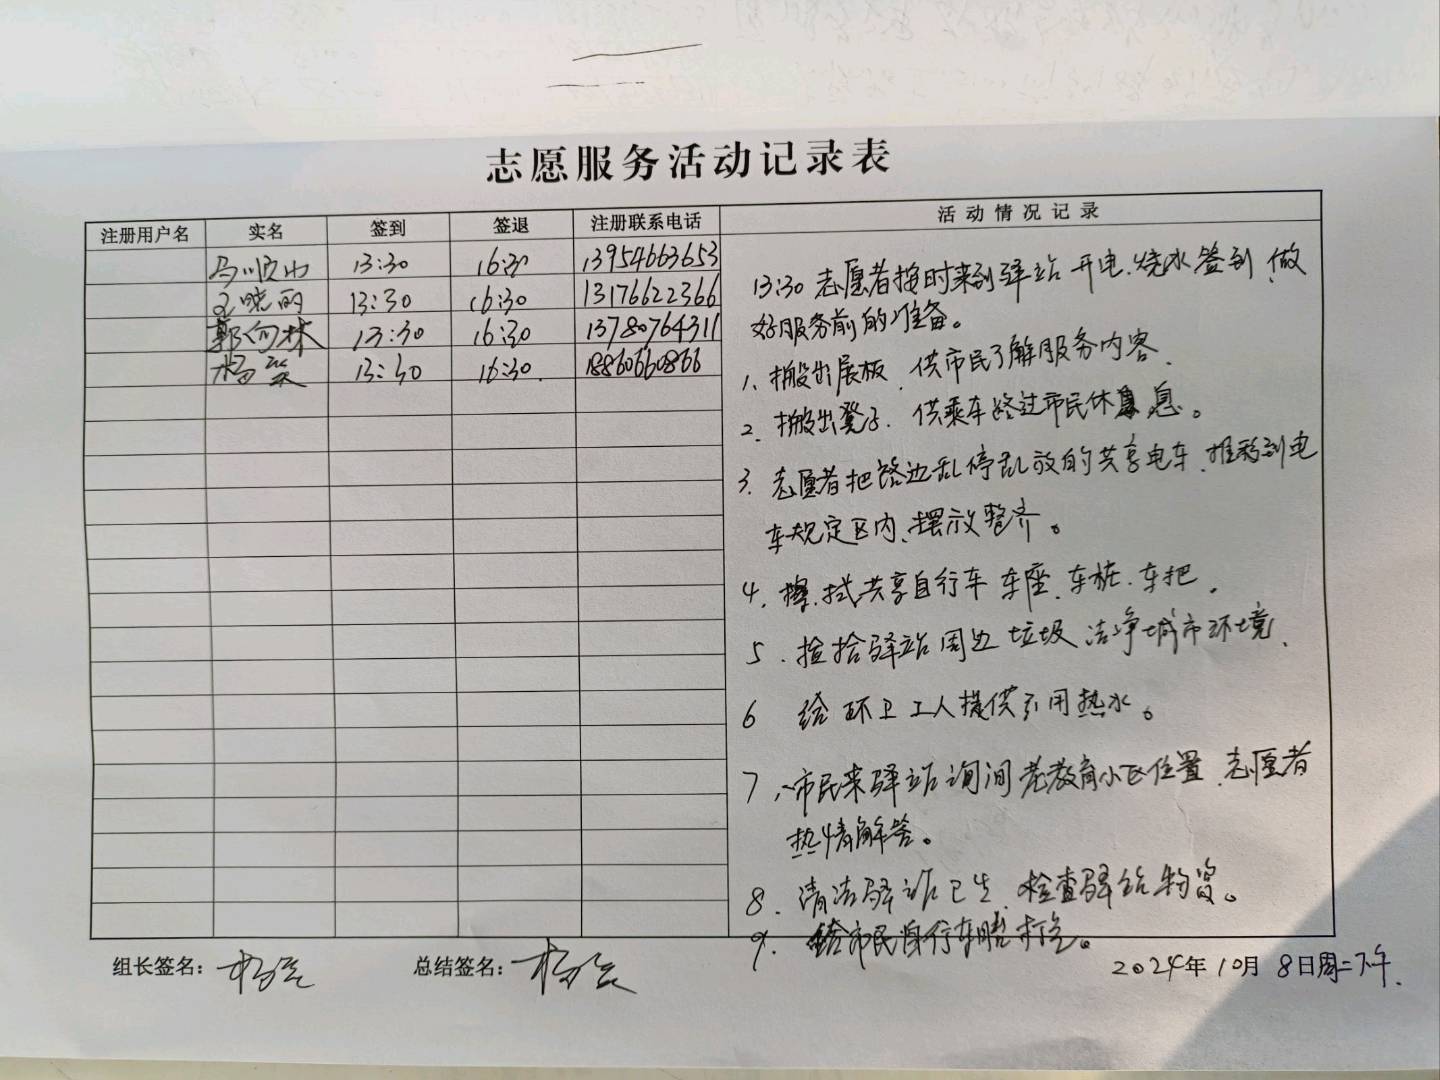 志愿服务活动记录表
注册用户名 实名 签到 签退 注册联系电话 活动情况记录
马顺山 13:30 16:30 13954663653
王晓丽 13:30 16:30 13176622366
郭向林 13:30 16:30 13780764311
杨 13:30 16:30 18860660866
13:30 志愿者按时来到驿站开电、烧水签到、做
好服务前的准备。
1、搬出展板、供市民了解服务内容、
2、搬出凳子、供乘车经过市民休息。
3、志愿者把路边乱停乱放的共享电车、推移到电
车规定区内、摆放整齐。
4、擦拭共享自行车车座、车桩、车把、
5、捡拾驿站周边垃圾 洁净城市环境、
6 给环卫工人提供引用热水。
7、市民来驿站询问老教育小区位置、志愿者
热情解答。
8、清洁驿站卫生、检查驿站物资。
9、给市民自行车打气。
组长签名: 杨 总结签名: 杨 2024年10月8日周二下午.